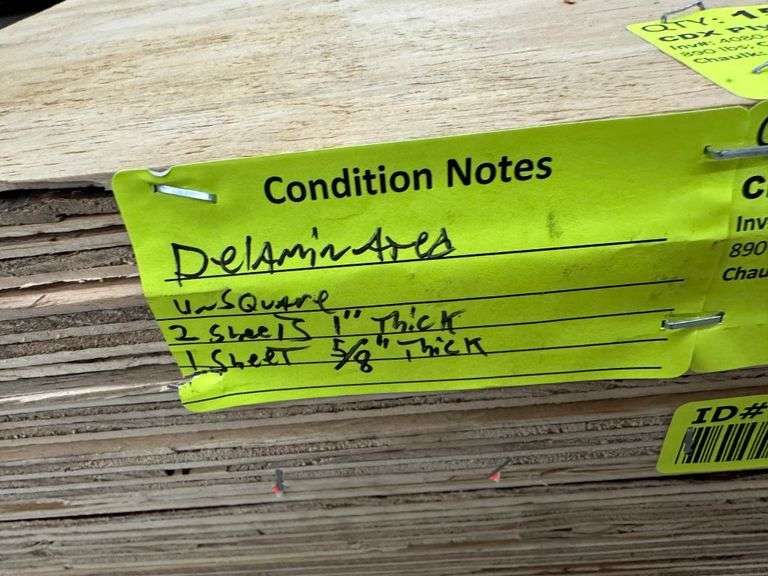 QTY: 15
CDX Ply
Inv#: 4080
890 lbs; C
Chaulk:
Condition Notes
DelAminAted
unSquare
2 Sheets 1" Thick
1 Sheet 5/8" Thick
C
Inv
890
Chau
ID#